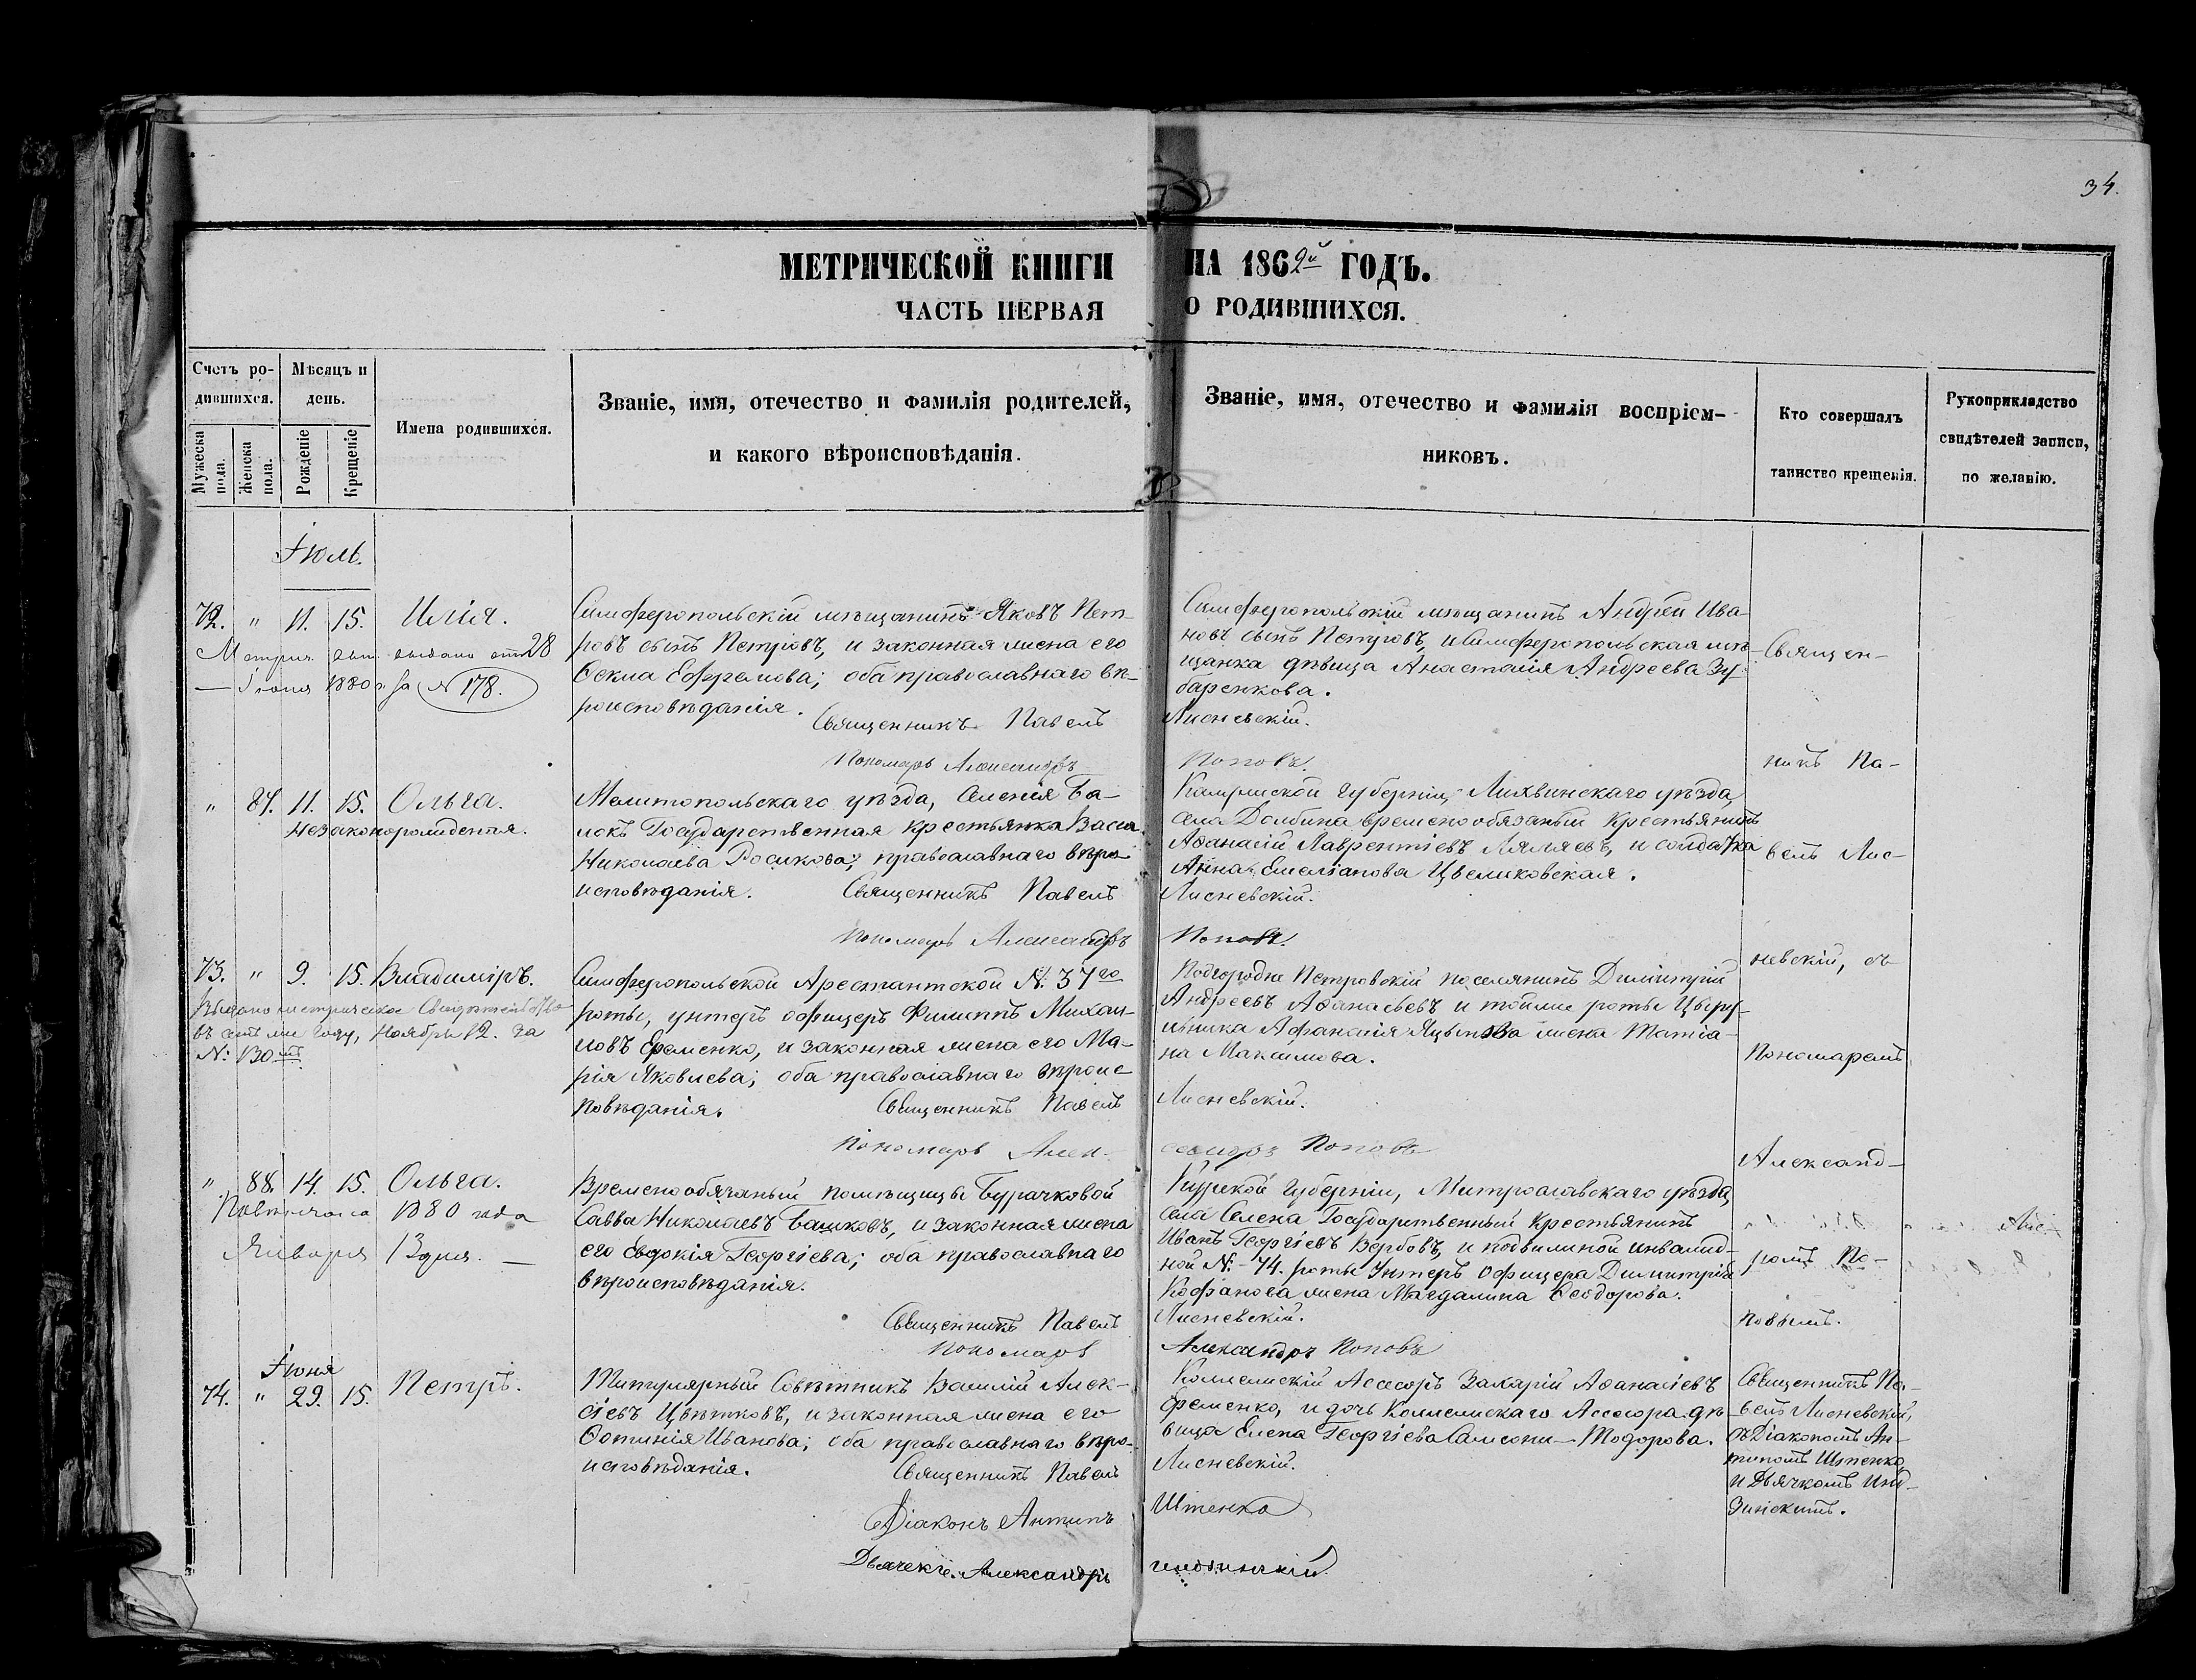 34.
МЕТРИЧЕСКОЙ КНИГИ НА 1862й ГОДЪ.
ЧАСТЬ ПЕРВАЯ О РОДИВШИХСЯ.
Счетъ ро-
дившихся.
Мужеска пола.
Женска пола.
Мѣсяцъ и
день.
Рожденіе
Крещеніе
Имена родившихся.
Званіе, имя, отечество и фамилія родителей,
и какого вѣроисповѣданія.
Званіе, имя, отечество и фамилія воспріем-
никовъ.
Кто совершалъ
таинство крещенія.
Рукоприкладство
свидѣтелей записи,
по желанію.
Іюль.
72. " 11. 15. Илія.
Метрич. выдано отъ 28
Іюня 1880 г. за № 178.
Симферопольскій мѣщанинъ Яковъ Пет-
ровъ сынъ Петровъ, и законная жена его
Ѳекла Ефремова; оба православнаго вѣ-
роисповѣданія.
Священникъ Павелъ Лисневскій.
Пономарь Александръ Поповъ.
Симферопольскій мѣщанинъ Андрей Ива-
новъ сынъ Петровъ, и Симферопольская мѣ-
щанка дѣвица Анастасія Андреева Зу-
баренкова.
" 87. 11. 15. Ольга.
Незаконорожденная.
Мелитопольскаго уѣзда, Селенія Ба-
локъ Государственная крестьянка Васса
Николаева Росикова; православнаго вѣро-
исповѣданія.
Священникъ Павелъ Лисневскій.
Пономарь Александръ Поповъ.
Калужской Губерніи, Лихвинскаго уѣзда,
села Долбина временообязаный крестьянинъ
Аѳанасій Лаврентіевъ Ляляевъ, и солдатка
Анна Емеліанова Цвелиховская.
73. " 9. 15. Владиміръ.
Выдано метрическое Свидѣтельство
въ семъ же году, Ноября 12. за
№: 130мъ
Симферопольской Арестантской №: 37го
роты, унтеръ офицеръ Филиппъ Михаи-
ловъ Еременко, и законная жена его Ма-
рія Яковлева; оба православнаго вѣроис-
повѣданія.
Священникъ Павелъ Лисневскій.
Пономарь Александръ Поповъ
Подгородне Петровскій поселянинъ Димитрій
Андреевъ Аѳанасьевъ и тойже роты Цыру-
льника Афанасія жена Татіа-
на Максимова.
" 88. 14. 15. Ольга.
1880 года
Января 13 дня.
Временообязаный помѣщицы Бурачковой
Савва Николаевъ Башковъ, и законная жена
его Евдокія Георгіева; оба православнаго
вѣроисповѣданія.
Священникъ Павелъ Лисневскій.
Пономарь Александръ Поповъ
Курской Губерніи, уѣзда,
села Государственный Крестьянинъ
Иванъ Георгіевъ Вербовъ, и подвижной инвалид-
ной №:-74. роты Унтеръ Офицера Димитрія
Кофанова жена Магдалина Ѳеодорова.
Священ-
никъ Па-
велъ Лис-
невскій, съ
Пономаремъ
Александ-
ромъ По-
повымъ.
Іюня
74. " 29. 15. Петръ.
Титулярный Совѣтникъ Василій Алек-
сіевъ Цвѣтковъ, и законная жена его
Фотинія Иванова; оба православнаго вѣро-
исповѣданія.
Священникъ Павелъ Лисневскій.
Діаконъ Антипъ Штенко
Дьячекъ Александръ
Коллежскій Асесоръ Захарій Аѳанасіевъ
Еременко, и дочь Коллежскаго Ассесора дѣ-
вица Елена Георгіева Самсони-Тодорова.
Священникъ Па-
велъ Лисневскій,
съ Діакономъ Ан-
типомъ Штенко
и Дьячкомъ